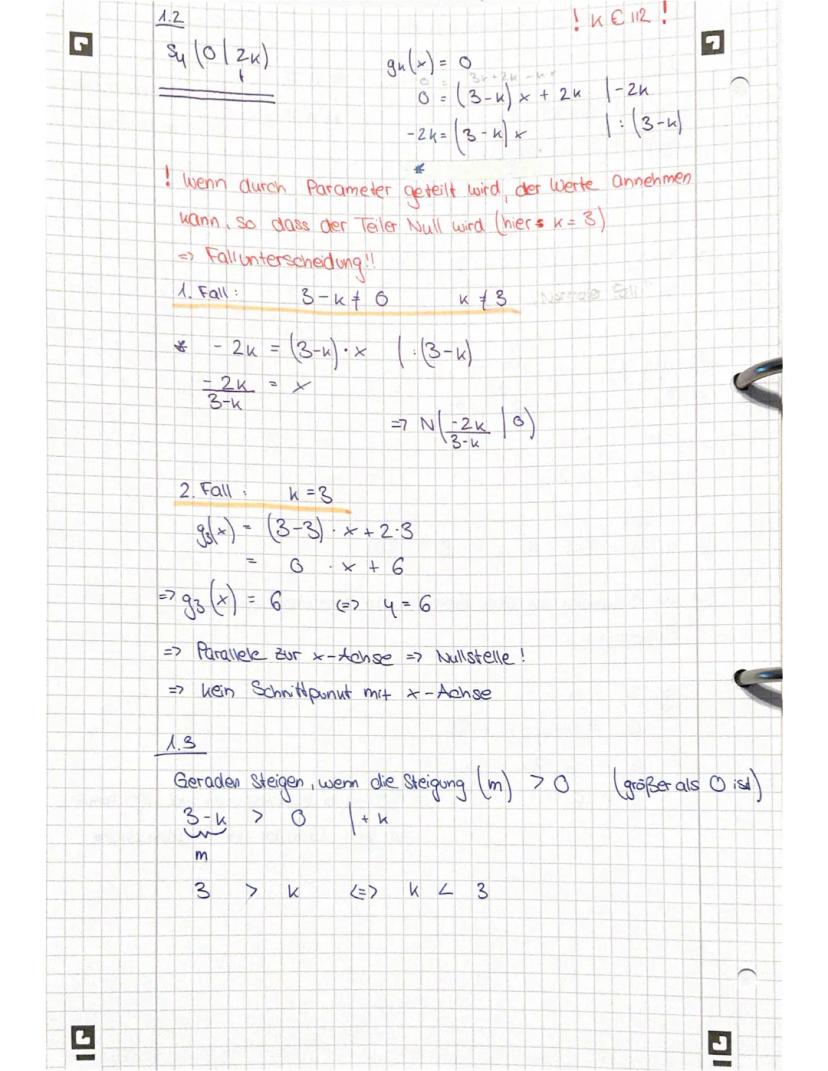 1.2
! k ∈ ℝ !
Sy (0 | 2k)
gk(x) = 0
0 = (3-k) x + 2k | -2k
-2k = (3-k) x | : (3-k)
*
! Wenn durch Parameter geteilt wird, der Werte annehmen
kann, so dass der Teiler Null wird (hier: k = 3)
=> Fallunterscheidung!!
1. Fall: 3-k ≠ 0 k ≠ 3
* -2k = (3-k) · x | : (3-k)
-2k/3-k = x
=> N(-2k/3-k | 0)
2. Fall: k = 3
g3(x) = (3-3) · x + 2·3
= 0 · x + 6
=> g3(x) = 6 <=> y = 6
=> Parallele zur x-Achse => Nullstelle!
=> kein Schnittpunkt mit x-Achse
1.3
Geraden steigen, wenn die Steigung (m) > 0 (größer als 0 ist)
3-k > 0 | + k
m
3 > k <=> k < 3